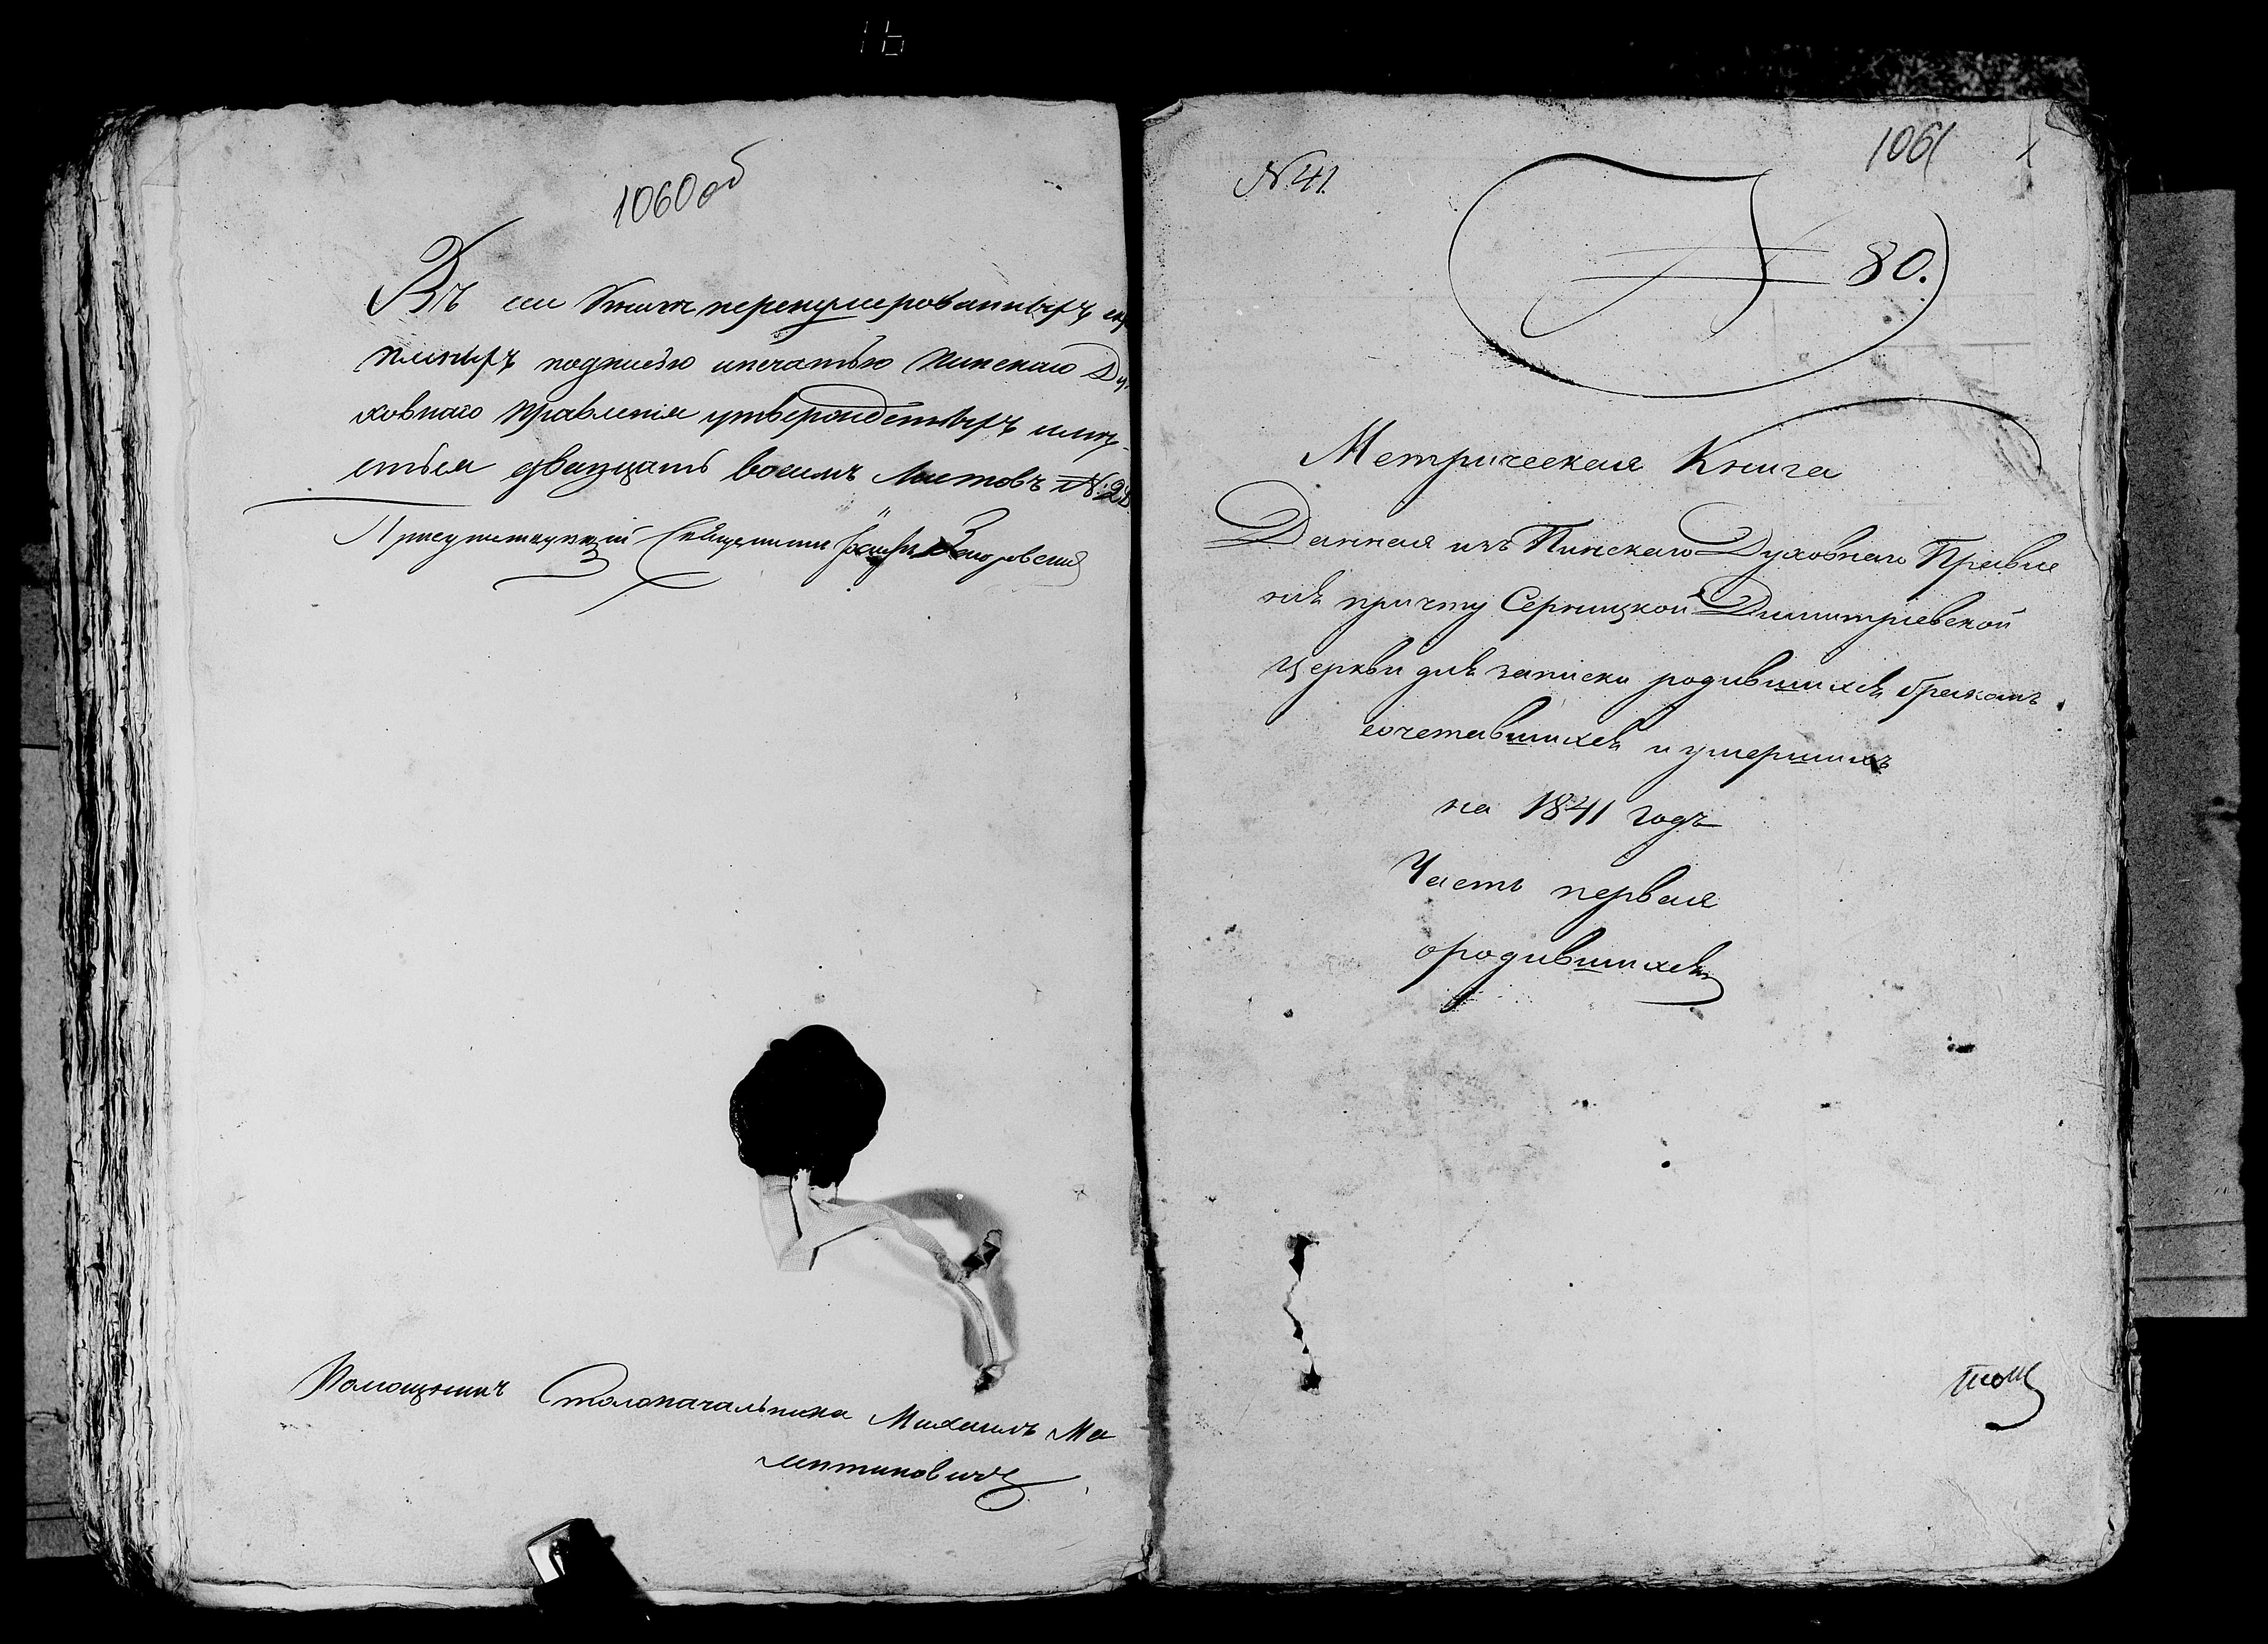 1060 об
Въ сей Книге перенумерованныхъ
подписью и печатью Пинскаго Ду
ховнаго Правленія утвержденныхъ
двадцать восемь листовъ № 28
Присутствующій Священникъ
Помощникъ Столоначальника Михаилъ Ма
1061
№ 41
80.
Метрическая Книга
Данная изъ Пинскаго Духовнаго Правле
нія причту Серницкой Димитріевской
Церкви для записки родившихся бракомъ
сочетавшихся и умершихъ
на 1841 годъ
Часть первая
о родившихся